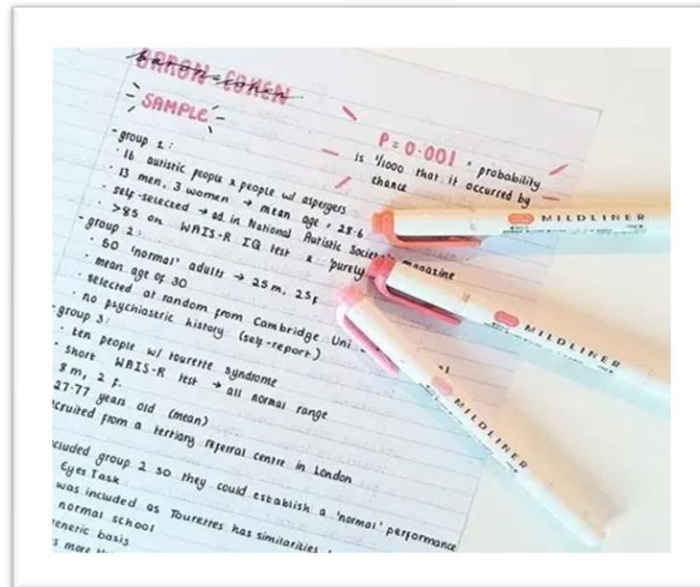 BARON-COHEN
SAMPLE
P = 0.001 = probability
is 1/1000 that it occurred by
chance
-group 1:
· 16 autistic people & people w/ aspergers
· 13 men, 3 women → mean age = 28.6
· self-selected → ad. in National Autistic Society magazine
· >85 on WAIS-R IQ test & 'purely
-group 2:
· 50 'normal' adults → 25m, 25f
· mean age of 30
· selected at random from Cambridge Uni
· no psychiastric history (self-report)
-group 3:
· ten people w/ tourette syndrome
· short WAIS-R test → all normal range
8m, 2 f.
27.77 years old (mean)
cruited from a tertiary referral centre in London
cluded group 2 so they could establish a 'normal' performance
Eyes Task
was included as Tourettes has similarities
normal school
eneric basis
MILDLINER
MILDLINER
MILDLINER